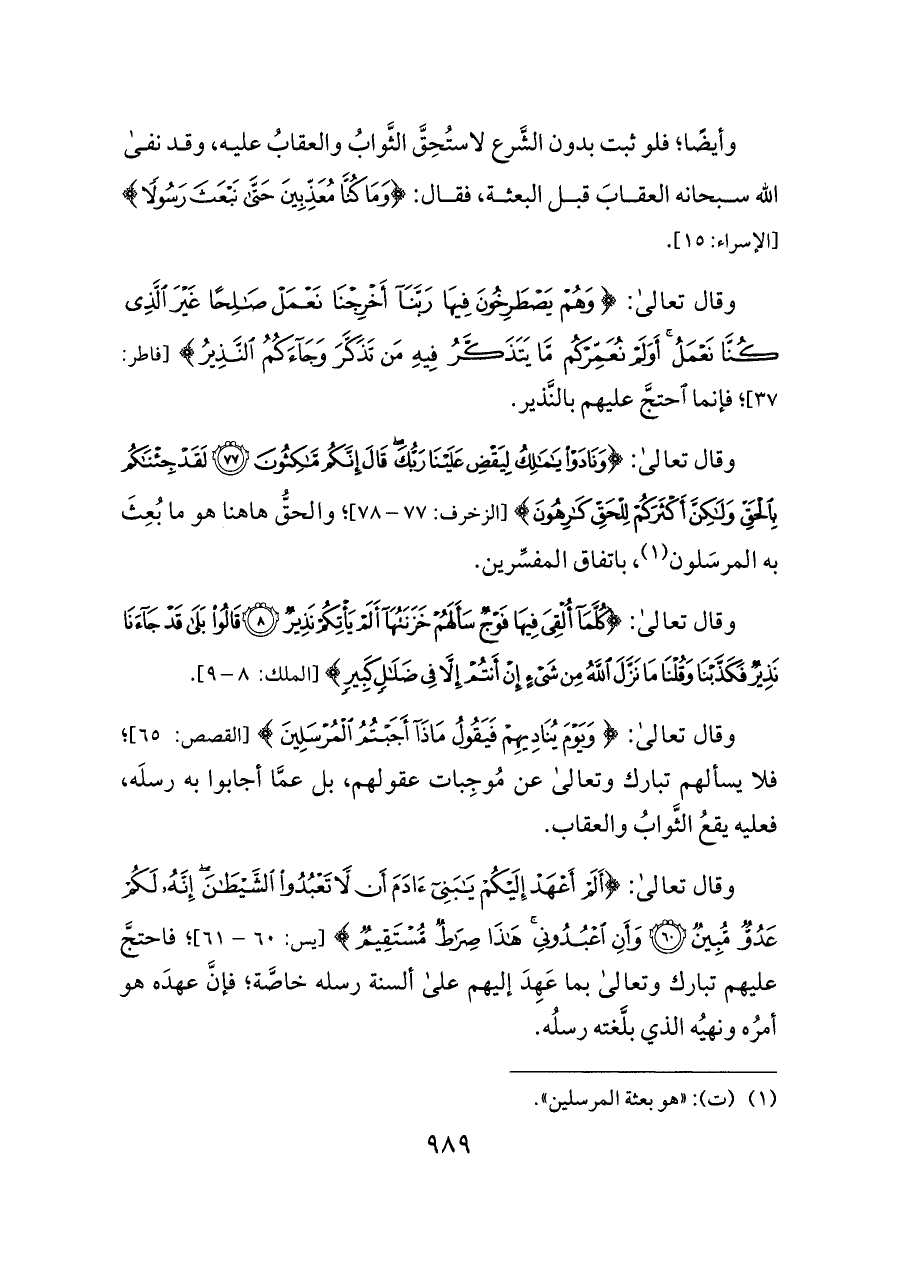 وأيضًا؛ فلو ثبت بدون الشَّرع لاستُحِقَّ الثَّوابُ والعقابُ عليه، وقد نفىٰ
الله سبحانه العقابَ قبل البعثة، فقال: ﴿وَمَا كُنَّا مُعَذِّبِينَ حَتَّىٰ نَبْعَثَ رَسُولًا﴾
[الإسراء: ١٥].
وقال تعالىٰ: ﴿وَهُمْ يَصْطَرِخُونَ فِيهَا رَبَّنَآ أَخْرِجْنَا نَعْمَلْ صَٰلِحًا غَيْرَ ٱلَّذِى
كُنَّا نَعْمَلُ ۚ أَوَلَمْ نُعَمِّرْكُم مَّا يَتَذَكَّرُ فِيهِ مَن تَذَكَّرَ وَجَآءَكُمُ ٱلنَّذِيرُ﴾ [فاطر:
٣٧]؛ فإنما ٱحتجَّ عليهم بالنَّذير.
وقال تعالىٰ: ﴿وَنَادَوْا۟ يَٰمَٰلِكُ لِيَقْضِ عَلَيْنَا رَبُّكَ ۖ قَالَ إِنَّكُم مَّٰكِثُونَ ﴿٧٧﴾ لَقَدْ جِئْنَٰكُم
بِٱلْحَقِّ وَلَٰكِنَّ أَكْثَرَكُمْ لِلْحَقِّ كَٰرِهُونَ﴾ [الزخرف: ٧٧ – ٧٨]؛ والحقُّ هاهنا هو ما بُعِثَ
به المرسَلون(١)، باتفاق المفسِّرين.
وقال تعالىٰ: ﴿كُلَّمَآ أُلْقِىَ فِيهَا فَوْجٌ سَأَلَهُمْ خَزَنَتُهَآ أَلَمْ يَأْتِكُمْ نَذِيرٌ ﴿٨﴾ قَالُوا۟ بَلَىٰ قَدْ جَآءَنَا
نَذِيرٌ فَكَذَّبْنَا وَقُلْنَا مَا نَزَّلَ ٱللَّهُ مِن شَىْءٍ إِنْ أَنتُمْ إِلَّا فِى ضَلَٰلٍ كَبِيرٍ﴾ [الملك: ٨ – ٩].
وقال تعالىٰ: ﴿وَيَوْمَ يُنَادِيهِمْ فَيَقُولُ مَاذَآ أَجَبْتُمُ ٱلْمُرْسَلِينَ﴾ [القصص: ٦٥]؛
فلا يسألهم تبارك وتعالىٰ عن مُوجِبات عقولهم، بل عمَّا أجابوا به رسلَه،
فعليه يقعُ الثَّوابُ والعقاب.
وقال تعالىٰ: ﴿أَلَمْ أَعْهَدْ إِلَيْكُمْ يَٰبَنِىٓ ءَادَمَ أَن لَّا تَعْبُدُوا۟ ٱلشَّيْطَٰنَ ۖ إِنَّهُۥ لَكُمْ
عَدُوٌّ مُّبِينٌ ﴿٦٠﴾ وَأَنِ ٱعْبُدُونِى ۚ هَٰذَا صِرَٰطٌ مُّسْتَقِيمٌ﴾ [يس: ٦٠ – ٦١]؛ فاحتجَّ
عليهم تبارك وتعالىٰ بما عَهِدَ إليهم علىٰ ألسنة رسله خاصَّة؛ فإنَّ عهدَه هو
أمرُه ونهيُه الذي بلَّغته رسلُه.
(١) (ت): «هو بعثة المرسلين».
٩٨٩